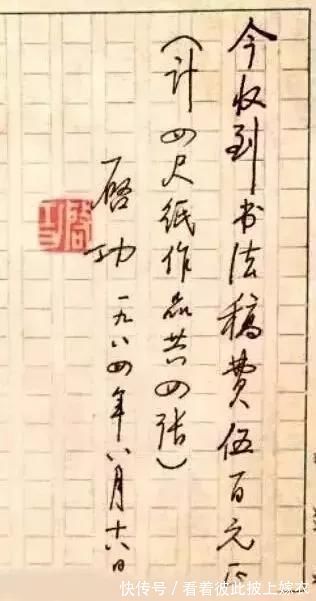 今收到书法稿费伍百元正
（计四尺纸作品共四张）
启功 一九八四年八月十六日
启功
快传号／看着彼此披上嫁衣